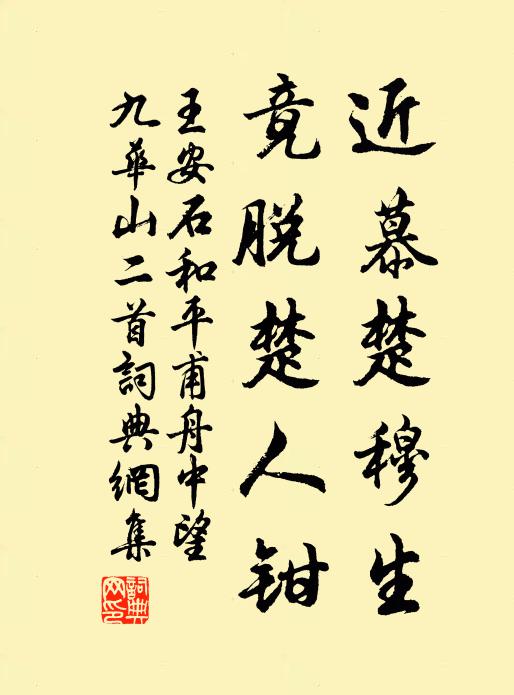 近慕楚穆生
竟脱楚人钳
王安石和平甫舟中望
九华山二首詞典網集
詞典網印